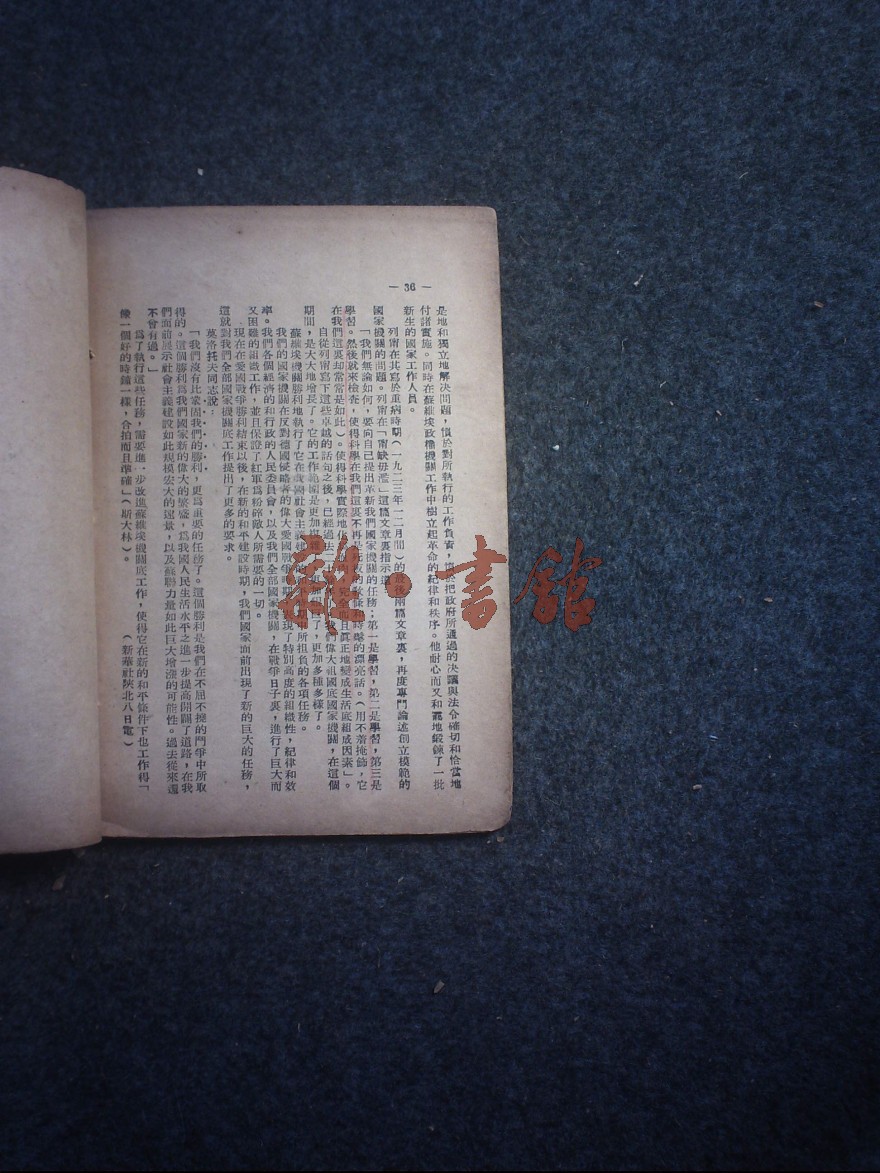 — 36 —
是地和獨立地解決問題，慎於對所執行的工作負責，慎於把政府所通過的決議與法令確切和恰當地
付諸實施。同時在蘇維埃政權機關工作中樹立起革命的紀律和秩序。他耐心而又和藹地鍛鍊了一批
新生的國家工作人員。
列甯在其寫於重病時期（一九二三年一二月間）的最後兩篇文章裏，再度專門論述創立模範的
國家機關的問題。列甯在「甯缺毋濫」這篇文章裏指示道：
「我們無論如何，要向自己提出革新我們國家機關的任務；第一是學習，第二是學習，第三是
學習。然後就來檢查，使得科學在我們這裏不再是死板的教條或時髦的漂亮話。（用不着掩飾，它
在我們這裏却常常是如此）。使得科學實際地化為血肉，完全而且眞正地變成生活底組成因素」。
自從列甯寫下這些卓越的話句之後，已經過去我們偉大祖國底國家機關，在這個
期間，是大大地增長了。它的工作範圍是更加了，更加多種多樣了。
蘇維埃機關勝利地執行了它在我國社會主義建設的和平時期中所担負的各項任務。
我們的國家機關在反對德國侵略者的偉大愛國戰爭期間，表現了特別高度的組織性，紀律和效
率。我們各個經濟的和行政的人民委員會，以及我們全部國家機關，在戰爭日子裏，進行了巨大而
又困難的組織工作，並且保證了紅軍爲粉碎敵人所需要的一切。
現在在愛國戰爭勝利結束以後，在新的和平建設時期，我們國家面前出現了新的巨大的任務，
這就對我們全部國家機關底工作提出了更多的要求。
莫洛托夫同志說：
「我們沒有比鞏固我們的勝利，更爲重要的任務了。這個勝利是我們在不屈不撓的鬥爭中所取
得的。這個勝利爲我們國家新的偉大的繁盛，爲我國人民生活水平之進一步提高開闢了道路，在我
們面前展示社會主義建設如此規模宏大的遠景，以及蘇聯力量如此巨大增漲的可能性。過去從來還
不曾有過。」
爲了執行這些任務，需要進一步改進蘇維埃機關底工作，使得它在新的和平條件下也工作得「
像一個好的時鐘一樣，合拍而且準確」（斯大林）。　（新華社陝北八日電）
雜·書館